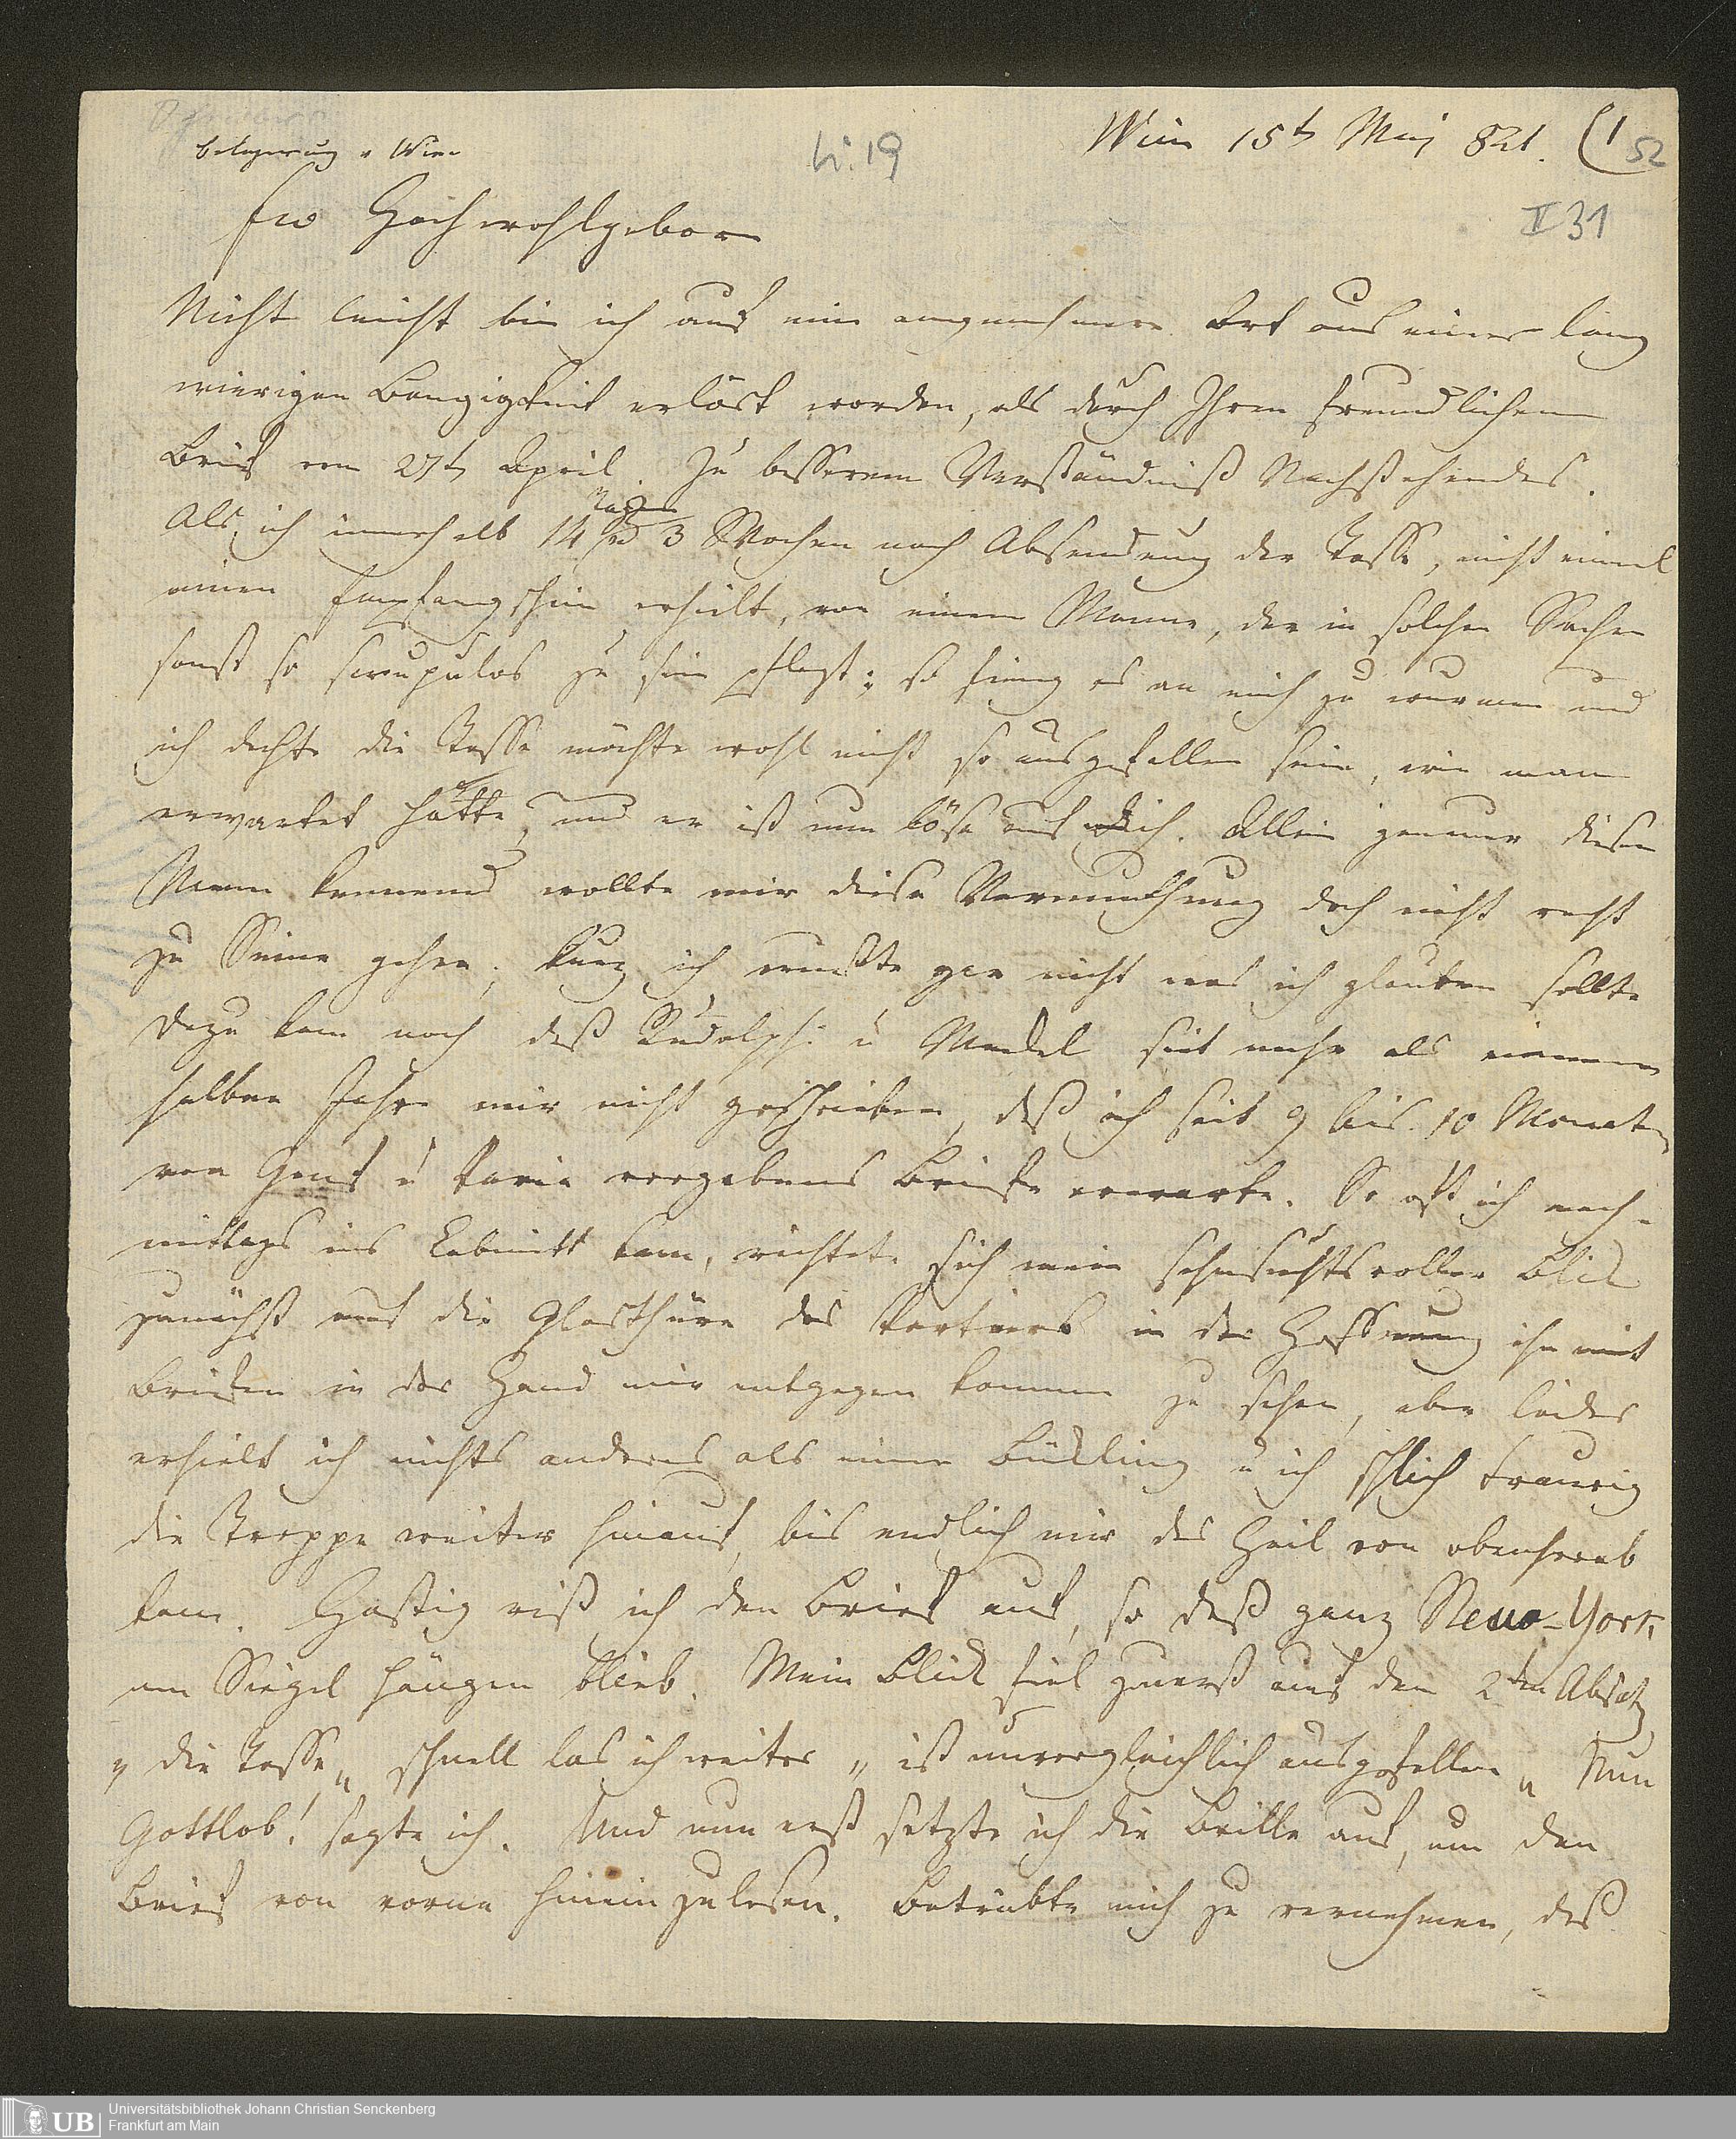 Belagerung v Wien
N: 19
Wien 15t Maj 821. (1
52
II 31
Ew Hochwohlgeborn
Nicht leicht bin ich auf eine angenehmere Art aus einer lang
wierigen Bangigkeit erlöst worden, als durch Ihren freundlichen
Brief vom 27t April. Zu besserem Verständniß Nachstehendes.
Als ich innerhalb 14 Tagen 3 Wochen nach Absendung der Tasse, nicht einmal
einen Empfangschein erhielt, von einem Manne, der in solchen Sachen
sonst so scrupulos zu sein pflegt; so fieng es an mich zu wurmen und
ich dachte die Tasse möchte wohl nicht so ausgefallen sein, wie man
erwartet hatte, und er ist nun böse auf dich. Allein genauer diesen
Mann kennend wollte mir diese Vermuthung doch nicht recht
zu Sinne gehen; kurz ich wußte gar nicht was ich glauben sollte
dazu kam noch daß Rudolphi u Meckel seit mehr als einem
halben Jahre mir nicht geschrieben, daß ich seit 9 bis 10 Monaten
von Genf u Pavia vergebens Briefe erwarte. So oft ich nach-
mittags ins Cabinett kam, richtete sich mein sehnsuchtsvoller Blick
zunächst auf die Glasthüre des Portiers in der Hoffnung ihn mit
Briefen in der Hand mir entgegen kommen zu sehen, aber leider
erhielt ich nichts anderes als einen Bückling u ich schlich traurig
die Treppe weiter hinauf, bis endlich mir das Heil von obenherab
kam. Hastig riß ich den Brief auf, so daß ganz New-York
am Siegel hängen blieb. Mein Blick fiel zuerst auf den 2ten Absatz
„ die Tasse „ schnell las ich weiter „ ist unvergleichlich ausgefallen „ Nun
Gottlob! sagte ich. Und nun erst setzte ich die Brille auf, um den
Brief von vorne hinein zu lesen. Betrübte mich zu vernehmen, daß
UB Universitätsbibliothek Johann Christian Senckenberg
Frankfurt am Main